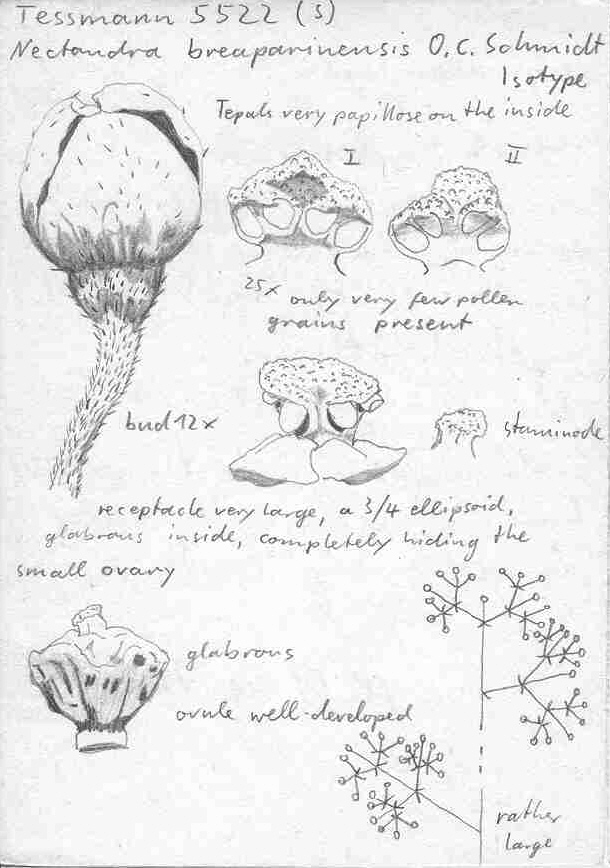 Tessmann 5522 (S)
Nectandra breaparinensis O.C. Schmidt
Isotype
Tepals very papillose on the inside
I II
25x only very few pollen
grains present
bud 12x
staminode
receptacle very large, a 3/4 ellipsoid,
glabrous inside, completely hiding the
small ovary
glabrous
ovule well-developed
rather
large